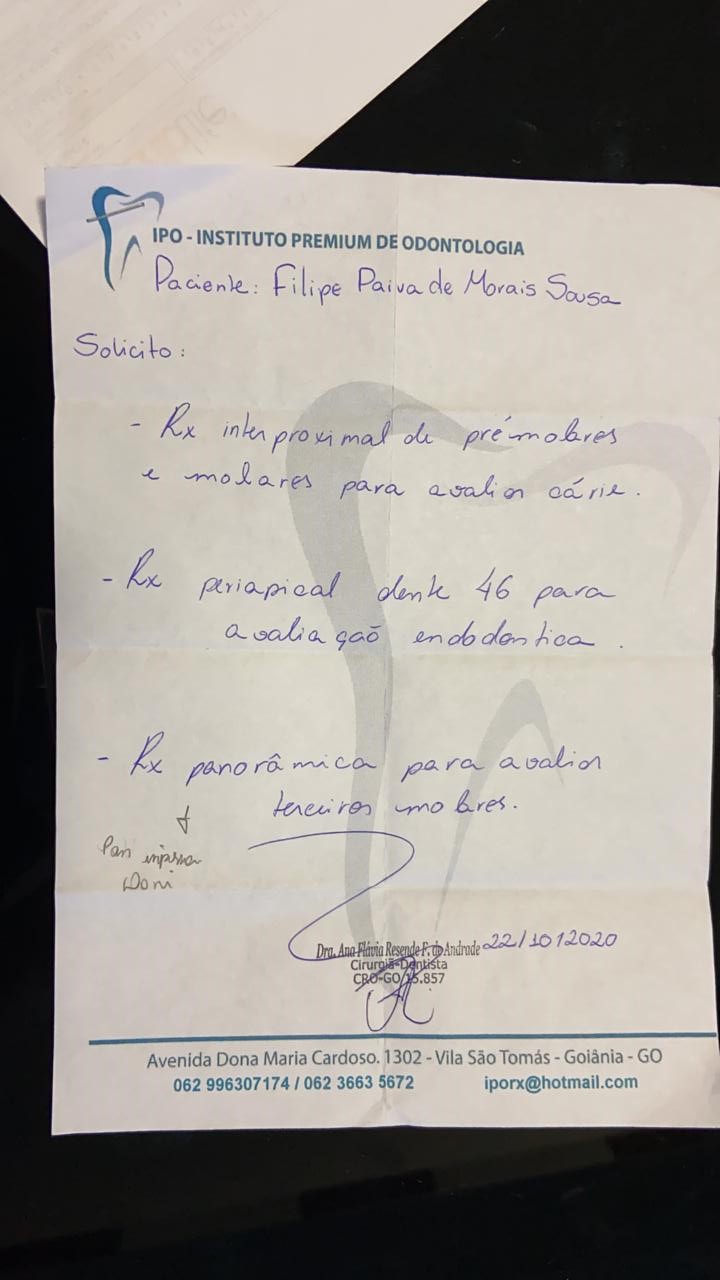 IPO - INSTITUTO PREMIUM DE ODONTOLOGIA
Paciente: Filipe Paiva de Morais Sousa
Solicito:
- Rx interproximal de prémolares
e molares para avaliar cárie.
- Rx periapical dente 46 para
avaliação endodontica.
- Rx panorâmica para avaliar
terceiros molares.
Pan
Dra. Ana Flávia Resende F. de Andrade 22/10/2020
Cirurgiã-Dentista
CRO-GO/15.857
Avenida Dona Maria Cardoso. 1302 - Vila São Tomás - Goiânia - GO
062 996307174 / 062 3663 5672 iporx@hotmail.com